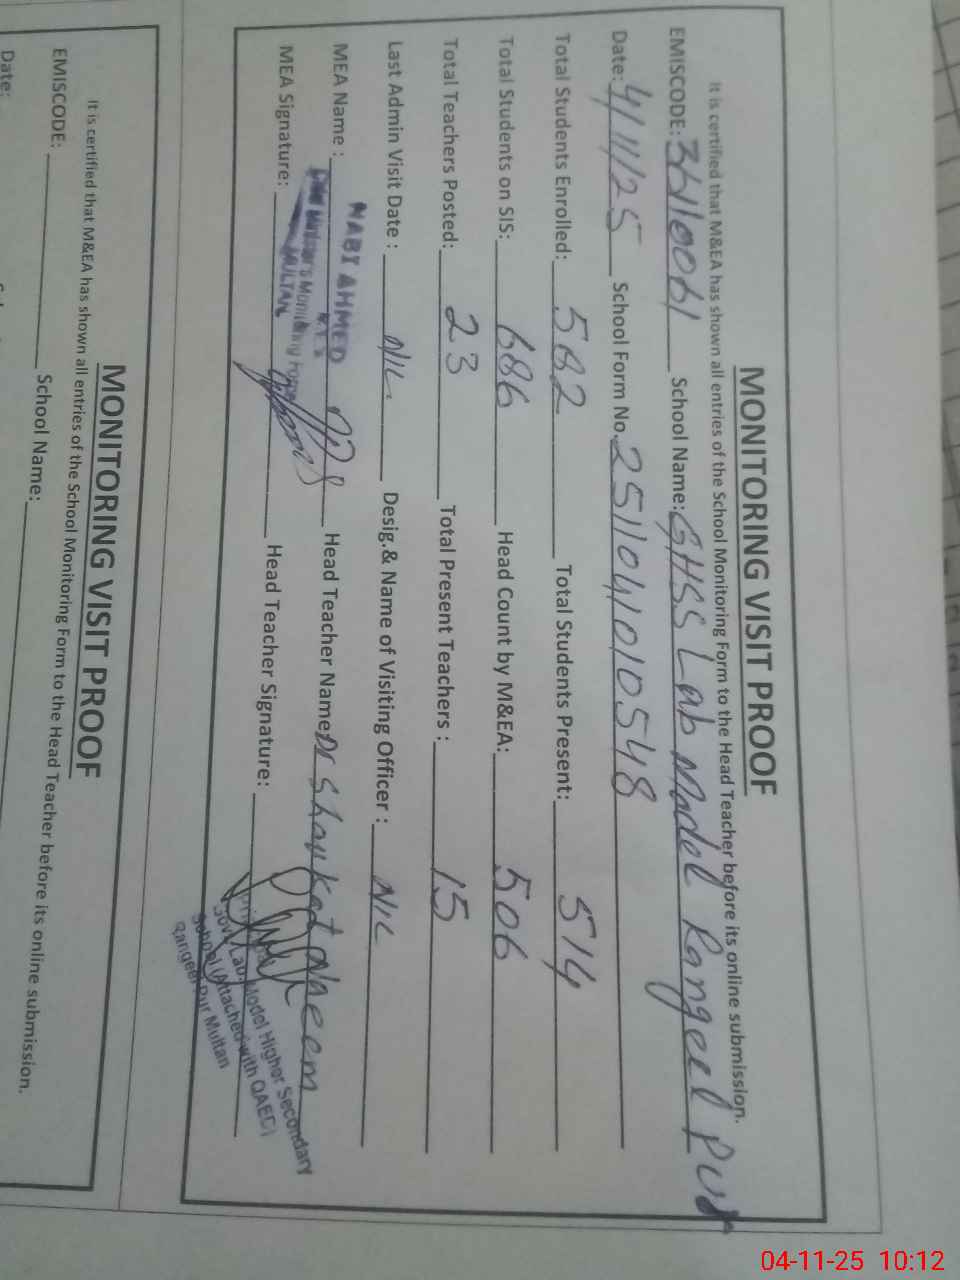 MONITORING VISIT PROOF
It is certified that M&EA has shown all entries of the School Monitoring Form to the Head Teacher before its online submission.
EMISCODE: 36110061 School Name: GHSS Lab Model Rangeel Pur
Date: 4/11/25 School Form No. 2511041010548
Total Students Enrolled: 582 Total Students Present: 514
Total Students on SIS: 686 Head Count by M&EA: 506
Total Teachers Posted: 23 Total Present Teachers : 15
Last Admin Visit Date : NIL Desig.& Name of Visiting Officer : NIL
MEA Name : NABI AHMED Head Teacher Name Dr Shaukat
MEA Signature: Head Teacher Signature:
Minister's Monitoring Force
MULTAN
Govt. Lab. Model Higher Secondary
School (Attached with QAED)
Rangeel Pur Multan
MONITORING VISIT PROOF
It is certified that M&EA has shown all entries of the School Monitoring Form to the Head Teacher before its online submission.
EMISCODE: School Name:
Date:
04-11-25 10:12